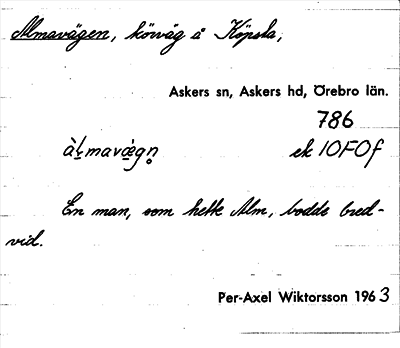 Almavägen, körväg å Köpsta,
Askers sn, Askers hd, Örebro län.
786
àḷmavæ̀gn̥ ek 10F0f
En man, som hette Alm, bodde bred-
vid.
Per-Axel Wiktorsson 1963